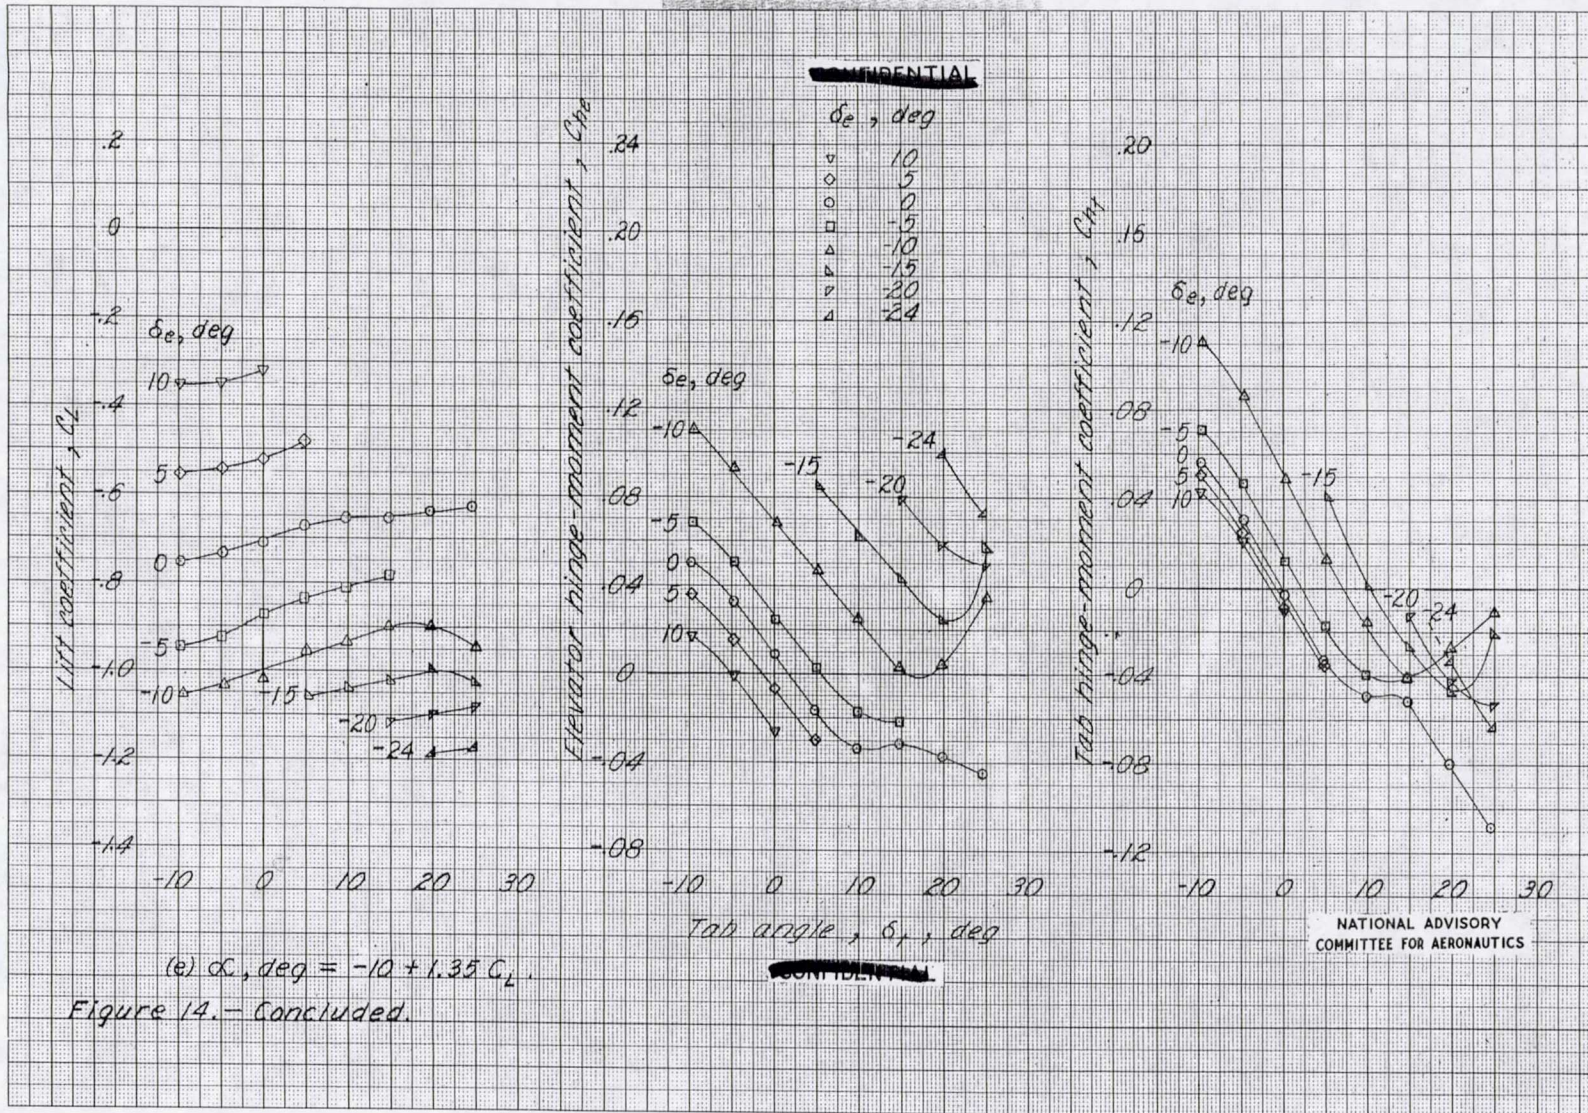 CONFIDENTIAL
δe, deg
10
5
0
-5
-10
-15
-20
-24
Lift coefficient, CL
.2
0
-.2
-.4
-.6
-.8
-1.0
-1.2
-1.4
δe, deg
10
5
0
-5
-10
-15
-20
-24
-10 0 10 20 30
Elevator hinge-moment coefficient, Che
.24
.20
.16
.12
.08
.04
0
-.04
-.08
δe, deg
-10
-5
0
5
10
-15
-20
-24
-10 0 10 20 30
Tab hinge-moment coefficient, Cht
.20
.16
.12
.08
.04
0
-.04
-.08
-.12
δe, deg
-10
-5
0
5
10
-15
-20
-24
-10 0 10 20 30
Tab angle, δt, deg
NATIONAL ADVISORY
COMMITTEE FOR AERONAUTICS
CONFIDENTIAL
(e) α, deg = -10 + 1.35 CL.
Figure 14.- Concluded.